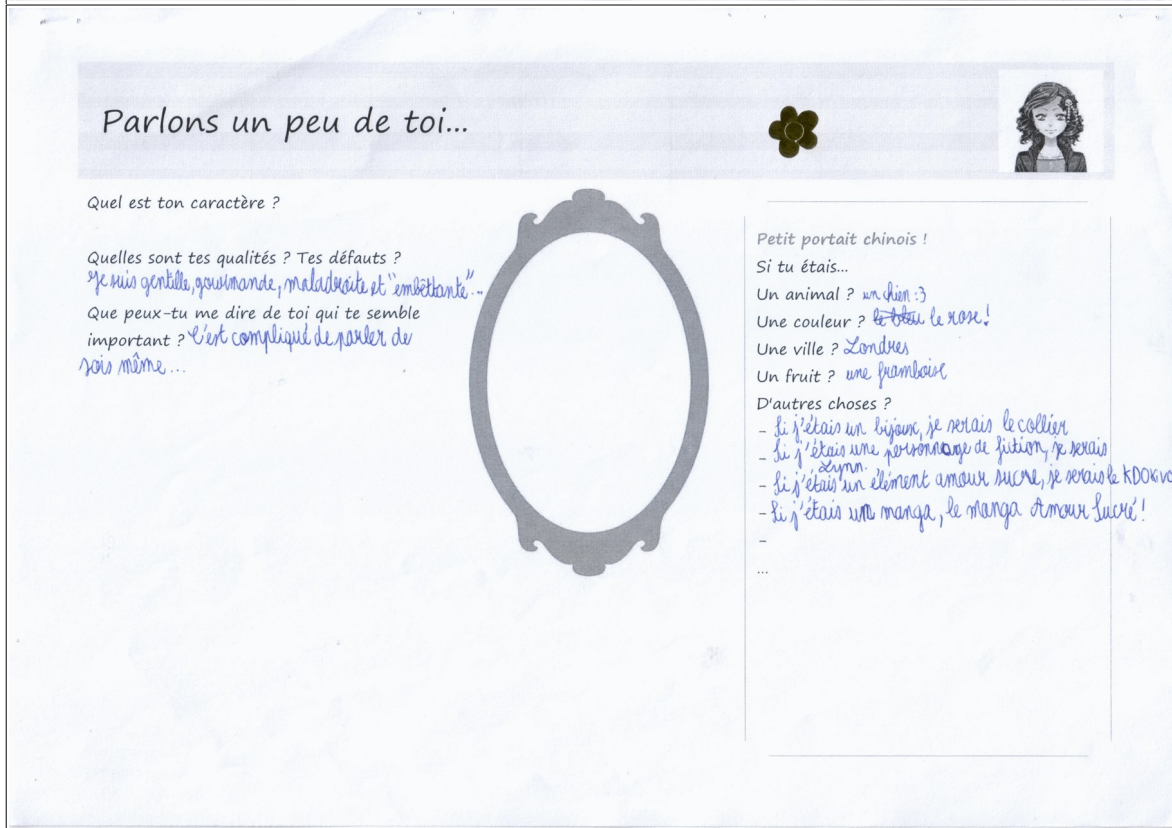 Parlons un peu de toi...
Quel est ton caractère ?
Quelles sont tes qualités ? Tes défauts ?
Je suis gentille, gourmande, maladroite et "embêttante"...
Que peux-tu me dire de toi qui te semble
important ? C'est compliqué de parler de
sois même...
Petit portait chinois !
Si tu étais...
Un animal ? un chien :3
Une couleur ? le bleu le rose !
Une ville ? Londres
Un fruit ? une framboise
D'autres choses ?
- Si j'étais un bijoux, je serais le collier
- Si j'étais une personnage de fiction, je serais
Lynn.
- Si j'étais un élément amour sucre, je serais le
- Si j'étais un manga, le manga Amour Sucré !
-
...